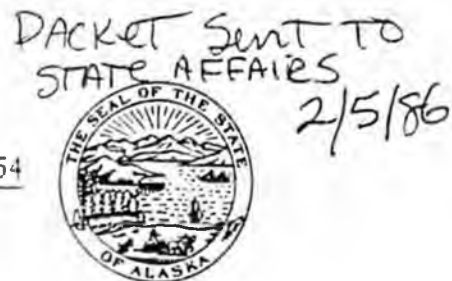 PACKET SENT TO
STATE AFFAIRS
2/5/86
54
THE SEAL OF THE STATE
OF ALASKA